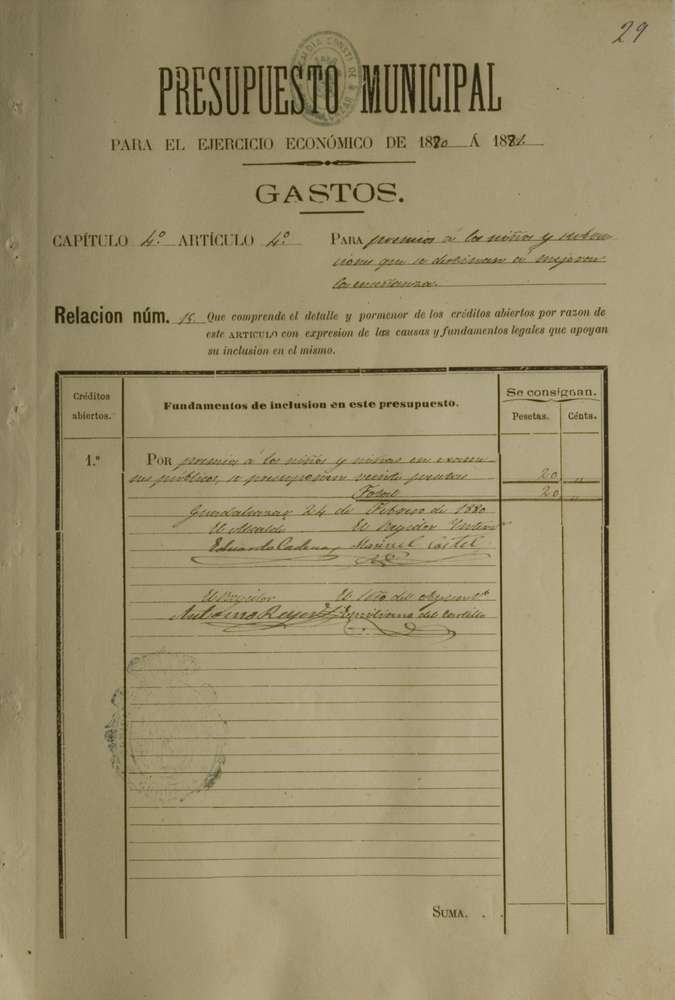 29
PRESUPUESTO MUNICIPAL
PARA EL EJERCICIO ECONÓMICO DE 1880 Á 1881.
GASTOS.
CAPÍTULO 4.º ARTÍCULO 4.º PARA premios á los niños y
que se destinan á mejorar
la enseñanza.
Relacion núm. 15. Que comprende el detalle y pormenor de los créditos abiertos por razon de
este ARTICULO con expresion de las causas y fundamentos legales que apoyan
su inclusion en el mismo.
Créditos abiertos.
Fundamentos de inclusion en este presupuesto.
Se consignan.
Pesetas. Cénts.
1.º POR premios á los niños y niñas en exame-
nes públicos, se presupuestan veinte pesetas 20 "
Total 20 "
24 de Febrero de 1880
El Alcalde El Regidor
Eduardo Cadenas Manuel Castel
El Regidor El Srio del Ayuntº
Antonio Reyes Emiliano del Castillo
SUMA. . .